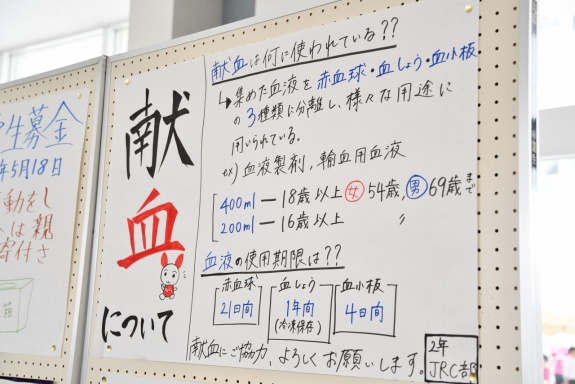 生募金
年5月18日
動をし
は親
寄付さ
箱
献血について
献血は何に使われている??
↳集めた血液を赤血球・血しょう・血小板
の3種類に分離し、様々な用途に
用いられている。
ex) 血液製剤, 輸血用血液
400ml ― 18歳以上 女 54歳, 男 69歳まで
200ml ― 16歳以上 〃
血液の使用期限は??
赤血球 血しょう 血小板
21日間 1年間 4日間
(冷凍保存)
献血にご協力、よろしくお願いします。
2年
JRC部